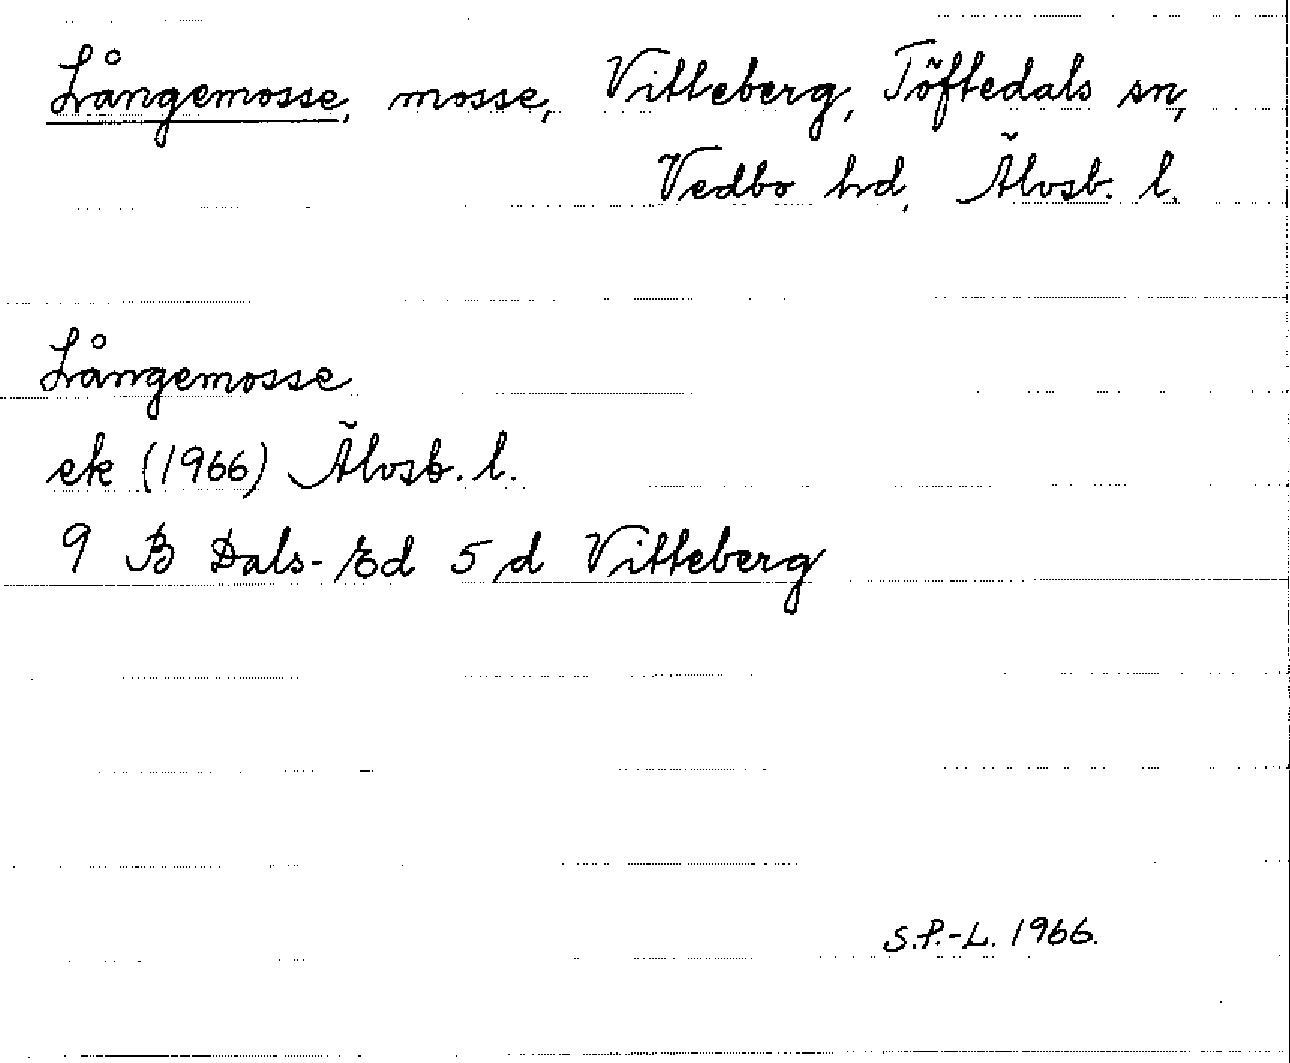 Långemosse, mosse, Vitteberg, Töftedals sn,
Vedbo hd, Älvsb. l.
Långemosse
ek (1966) Älvsb. l.
9 B Dals-Ed 5 d Vitteberg
S.P.-L. 1966.